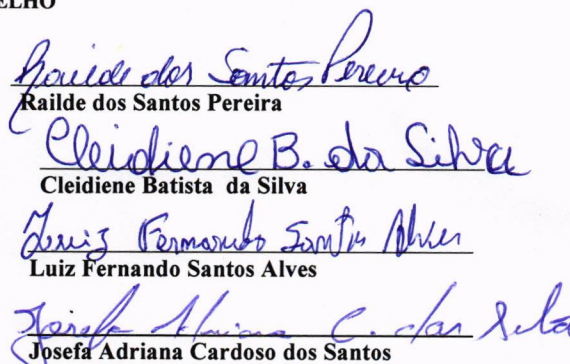 ELHO
Railde dos Santos Pereira
Railde dos Santos Pereira
Cleidiene B. da Silva
Cleidiene Batista da Silva
Luiz Fernando Santos Alves
Luiz Fernando Santos Alves
Josefa Adriana C. dos
Josefa Adriana Cardoso dos Santos